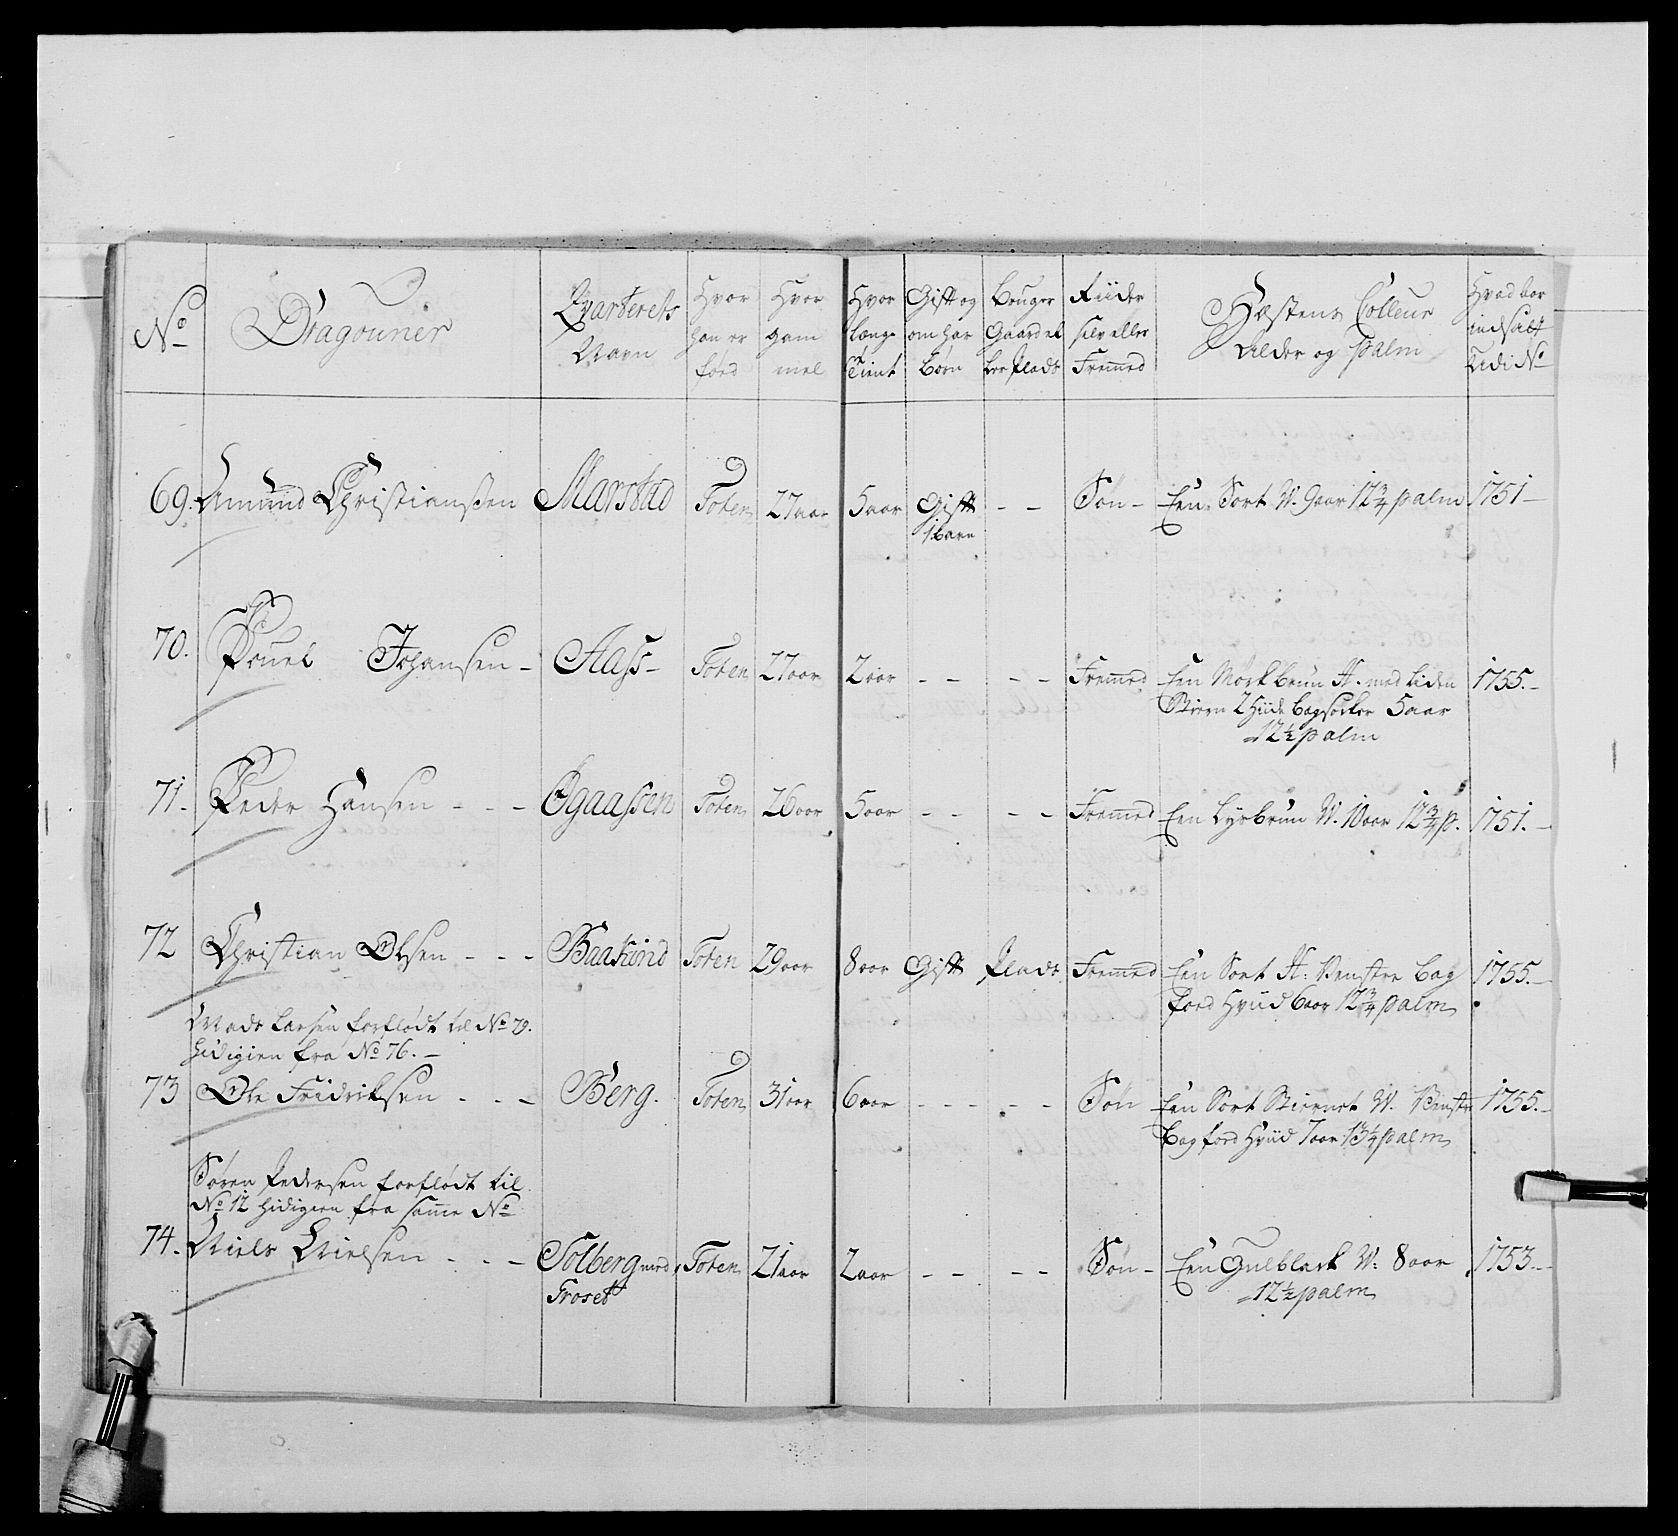 No Dragouner Qvarterets Navn Hvor han er fød Hvor gam mel Hvor længe Tient Gift og om har Børn Bruger Gaard el ler Plads Riider selv eller Fremmed Hæstens Colleur Alder og Palm Hvad aar indsatt Udi No
69. Amund Christianßen Marstad Toten 27 aar 5 aar Gift 1 Barn - - Søn - Een Sort W. 9 aar 12 3/4 palm 1751 -
70. Pouel Johansen - Aass - Toten 27 aar 2 aar - - - - Fremmed Een Mørkbrun H. med liden 1755. -
Stiern 2 Hvide bagsocker 5 aar
12 1/2 palm
71. Peder Hansen - - - Øgaassen Toten 26 aar 5 aar - - - - Fremmed Een Lysbrun W. 10 aar 12 3/4 p. 1751. -
72 Christian Olsen - - - Baalund Toten 29 aar 8 aar Gift Plads Fremmed Een Sort H: Venstre bag 1755. -
food Hvud 6 aar 12 3/4 palm
Mads Larsen forflødt til No 79.
hidigien fra No 76. -
73 Ole Fridriksen - - - Berg. Toten 31 aar 6 aar - - - - - Søn Een Sort Stiernet W. Venstre 1755. -
Bag food Hviid 7 aar 13 1/4 palm
Søren Pedersen forflødt til
No 12 hidigien fra samme No
74. Niels Nielsen - - - Solberg med Toten 21 aar 2 aar - - - - Søn - Een Gulblack W: 8 aar 1753 -
Froset 12 1/2 palm